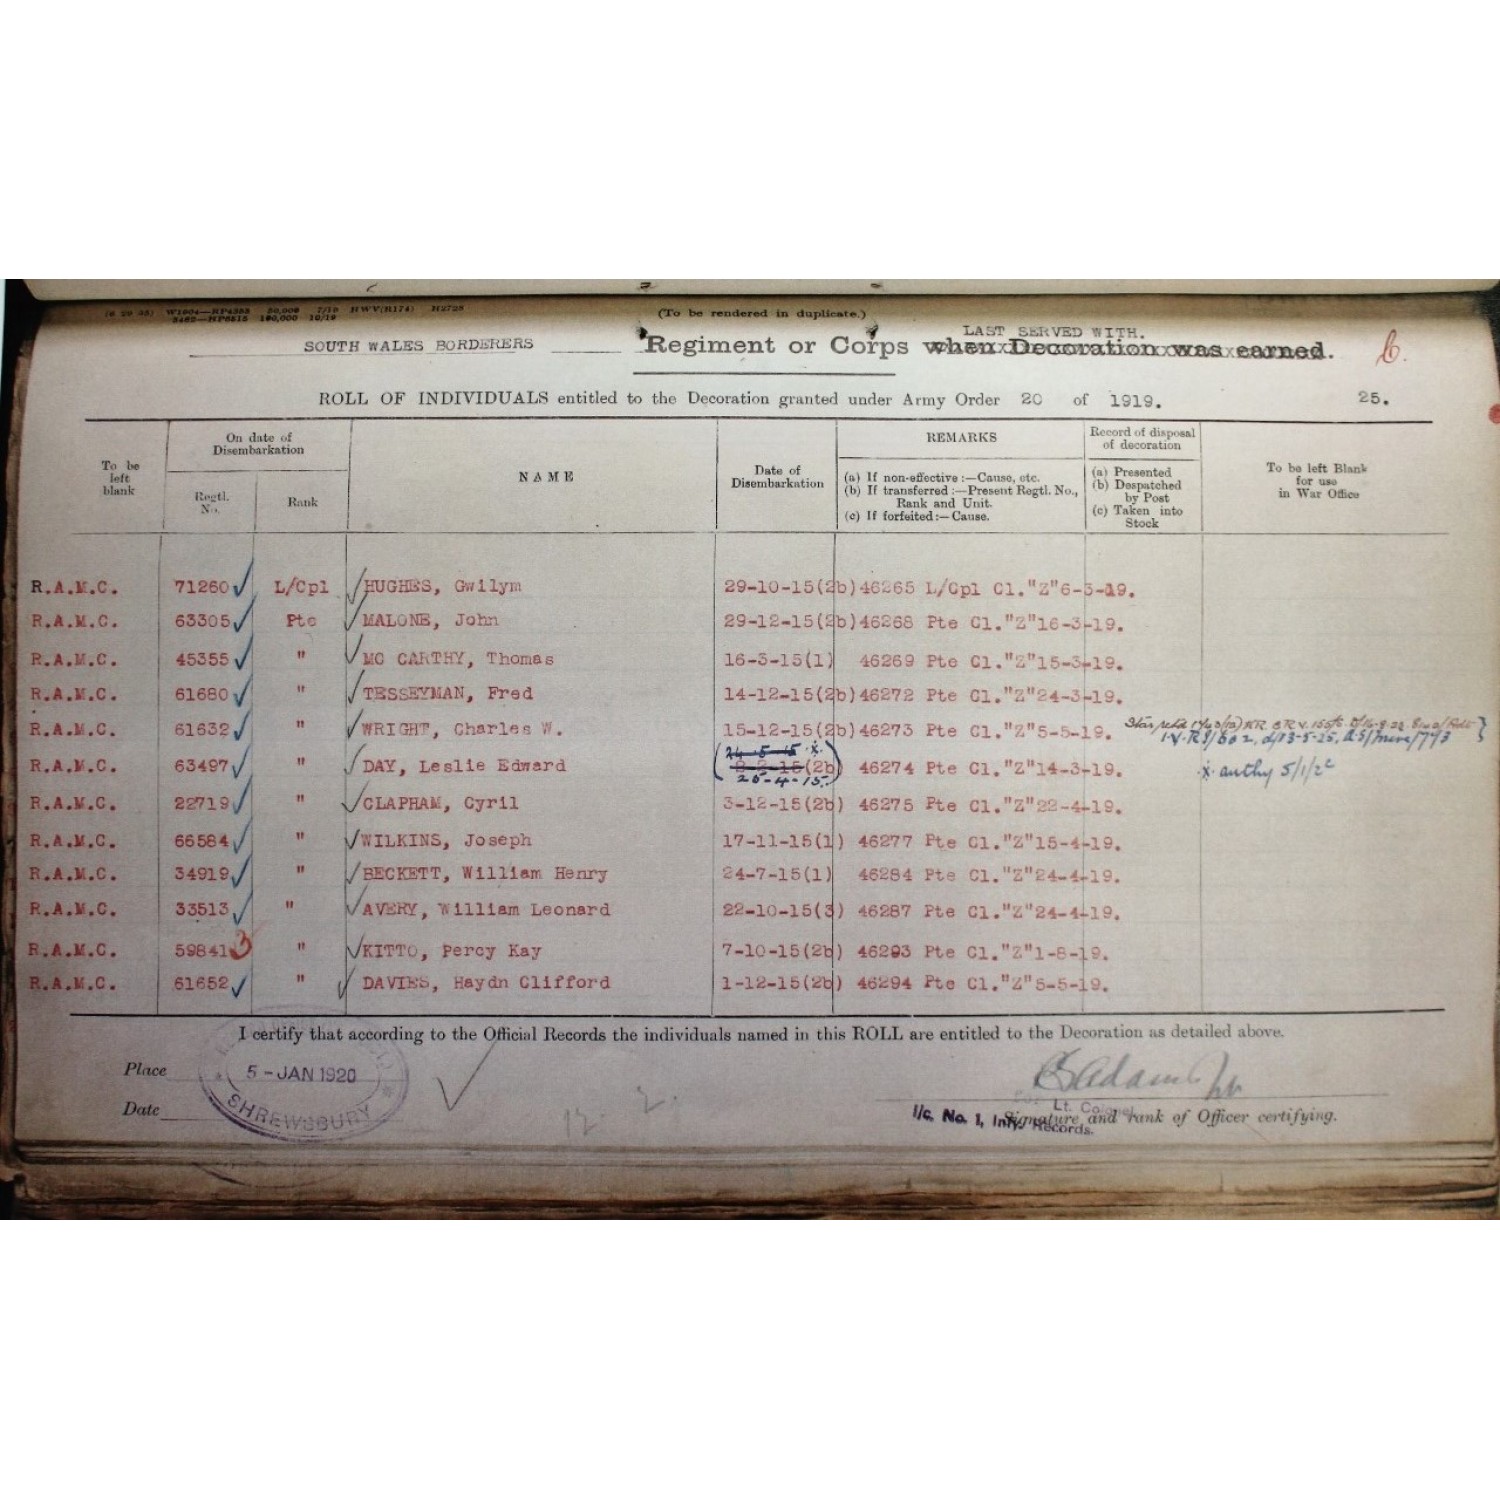 (To be rendered in duplicate.)
LAST SERVED WITH.
SOUTH WALES BORDERERS Regiment or Corps when Decoration was earned.
ROLL OF INDIVIDUALS entitled to the Decoration granted under Army Order 20 of 1919. 25.
To be left blank
On date of Disembarkation
Regtl. No.
Rank
NAME
Date of Disembarkation
REMARKS
(a) If non-effective:—Cause, etc.
(b) If transferred:—Present Regtl. No., Rank and Unit.
(c) If forfeited:—Cause.
Record of disposal of decoration
(a) Presented
(b) Despatched by Post
(c) Taken into Stock
To be left Blank for use in War Office
R.A.M.C. 71260 L/Cpl HUGHES, Gwilym 29-10-15(2b) 46265 L/Cpl Cl."Z"6-3-19.
R.A.M.C. 63305 Pte MALONE, John 29-12-15(2b) 46268 Pte Cl."Z"16-3-19.
R.A.M.C. 45355 " MC CARTHY, Thomas 16-3-15(1) 46269 Pte Cl."Z"15-3-19.
R.A.M.C. 61680 " TESSEYMAN, Fred 14-12-15(2b) 46272 Pte Cl."Z"24-3-19.
R.A.M.C. 61632 " WRIGHT, Charles W. 15-12-15(2b) 46273 Pte Cl."Z"5-5-19.
24-5-15
R.A.M.C. 63497 " DAY, Leslie Edward (2b) 46274 Pte Cl."Z"14-3-19. x authy 5/1/2c
25-4-15.
R.A.M.C. 22719 " CLAPHAM, Cyril 3-12-15(2b) 46275 Pte Cl."Z"22-4-19.
R.A.M.C. 66584 " WILKINS, Joseph 17-11-15(1) 46277 Pte Cl."Z"15-4-19.
R.A.M.C. 34919 " BECKETT, William Henry 24-7-15(1) 46284 Pte Cl."Z"24-4-19.
R.A.M.C. 33513 " AVERY, William Leonard 22-10-15(3) 46287 Pte Cl."Z"24-4-19.
R.A.M.C. 59841 3 " KITTO, Percy Kay 7-10-15(2b) 46293 Pte Cl."Z"1-8-19.
R.A.M.C. 61652 " DAVIES, Haydn Clifford 1-12-15(2b) 46294 Pte Cl."Z"5-5-19.
I certify that according to the Official Records the individuals named in this ROLL are entitled to the Decoration as detailed above.
Place
5-JAN 1920
SHREWSBURY
Date
Lt. Colonel
I/c. No. 1, Infy. Records.
Signature and rank of Officer certifying.